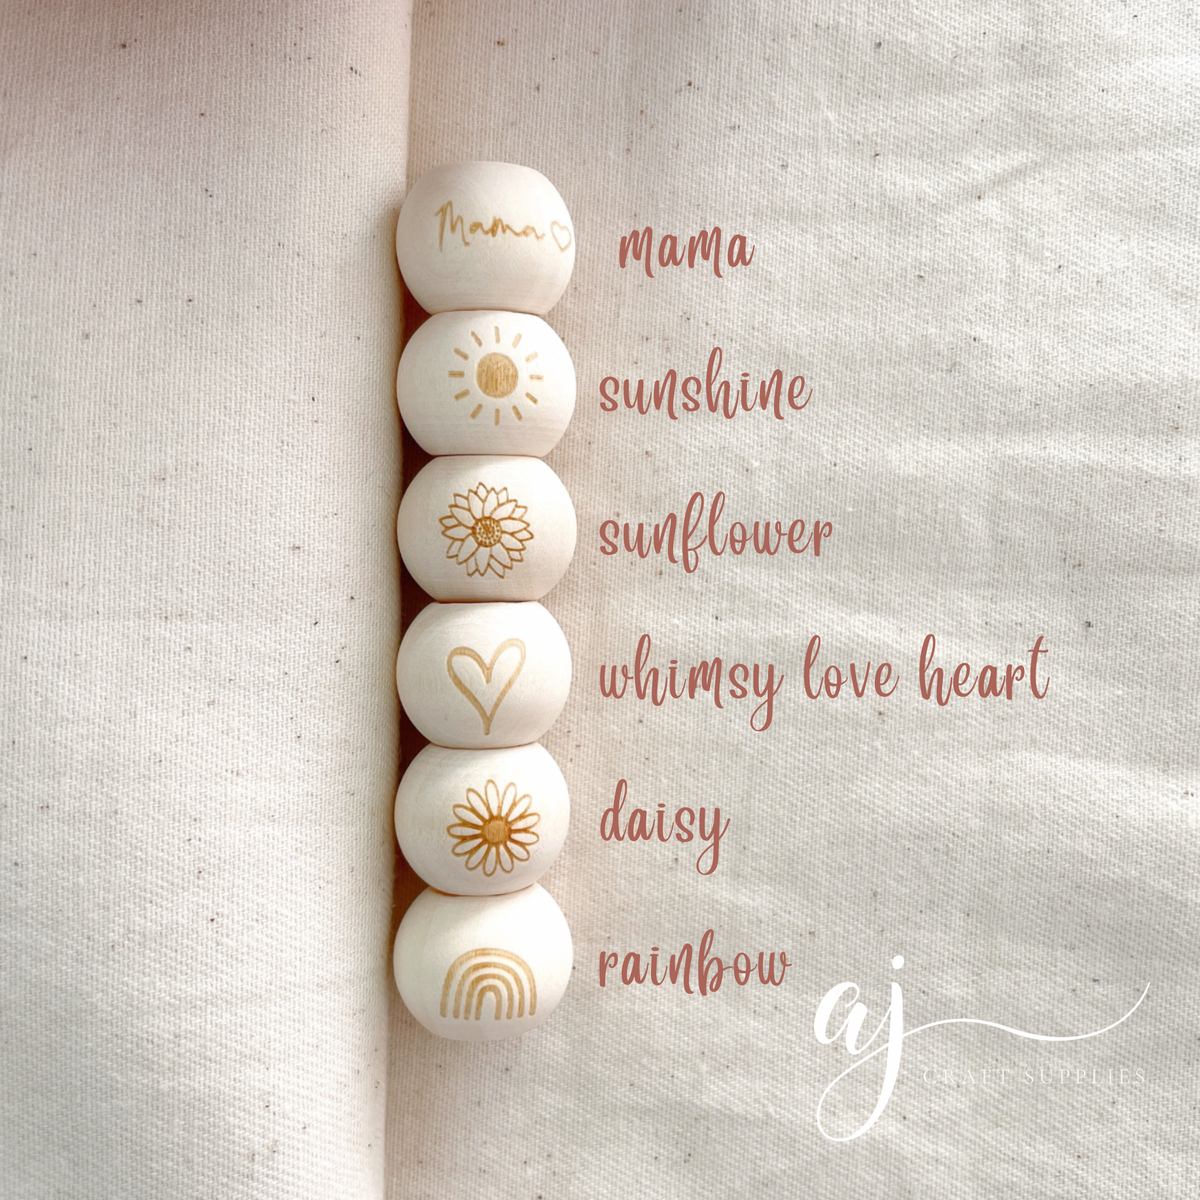 Mama
mama
sunshine
sunflower
whimsy love heart
daisy
rainbow
aj
CRAFT SUPPLIES